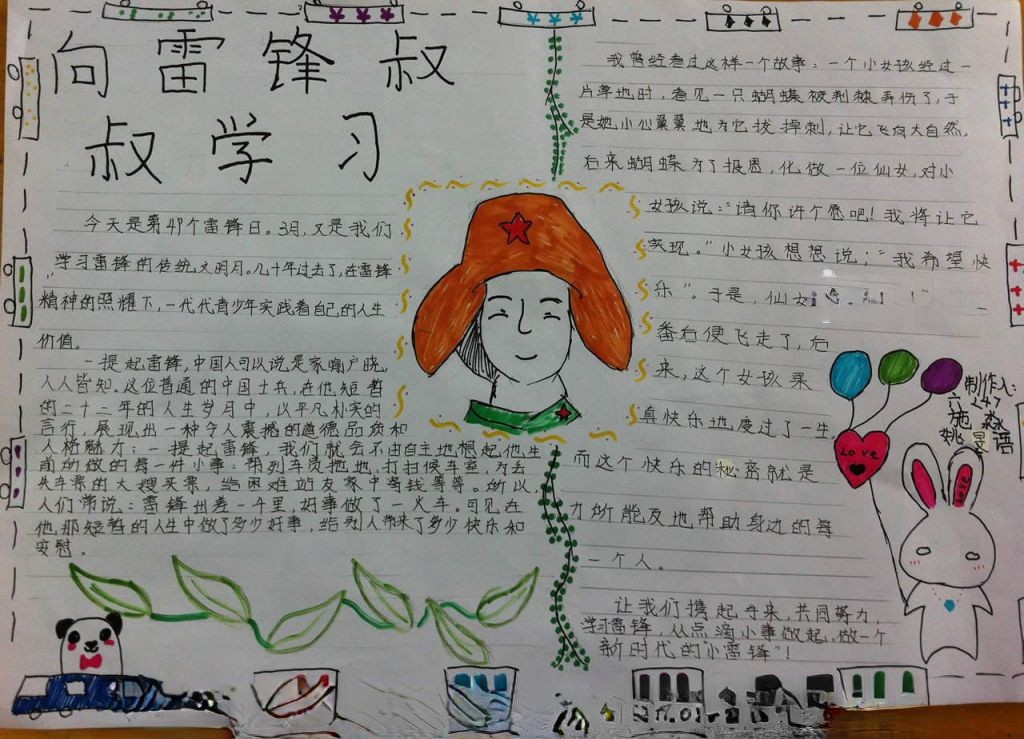 向雷锋叔
叔学习
今天是第49个雷锋日。3月,又是我们
"学习雷锋的传统文明月。几十年过去了,在雷锋
精神的照耀下,一代代青少年实践着自己的人生
价值。
一提起雷锋,中国人可以说是家喻户晓,
人人皆知。这位普通的中国士兵,在他短暂
的二十二年的人生岁月中,以平凡朴实的
言行,展现出一种令人震撼的道德品质和
人格魅力:一提起雷锋,我们就会不由自主地想起他生
前所做的每一件小事:帮列车员拖地,打扫候车室,为丢
失车票的大嫂买票,给困难站友家中寄钱等等。所以,
人们常说:雷锋出差一千里,好事做了一火车。可见在
他那短暂的人生中做了多少好事,给别人带来了多少快乐和
安慰。
我曾经看过这样一个故事:一个小女孩经过一
片草地时,看见一只蝴蝶被荆棘弄伤了,于
是她小心翼翼地为它拔掉刺,让它飞向大自然。
后来蝴蝶为了报恩,化做一位仙女,对小
女孩说:"请你许个愿吧!我将让它
实现。"小女孩想想说:"我希望快
乐"。于是,仙女
番后便飞走了,后
来,这个女孩果
真快乐地度过了一生
而这个快乐的秘密就是
力所能及地帮助身边的每
一个人。
让我们携起手来,共同努力,
学习雷锋,从点滴小事做起,做一个
新时代的"小雷锋"!
制作人:
六
姚
语
Love
Love